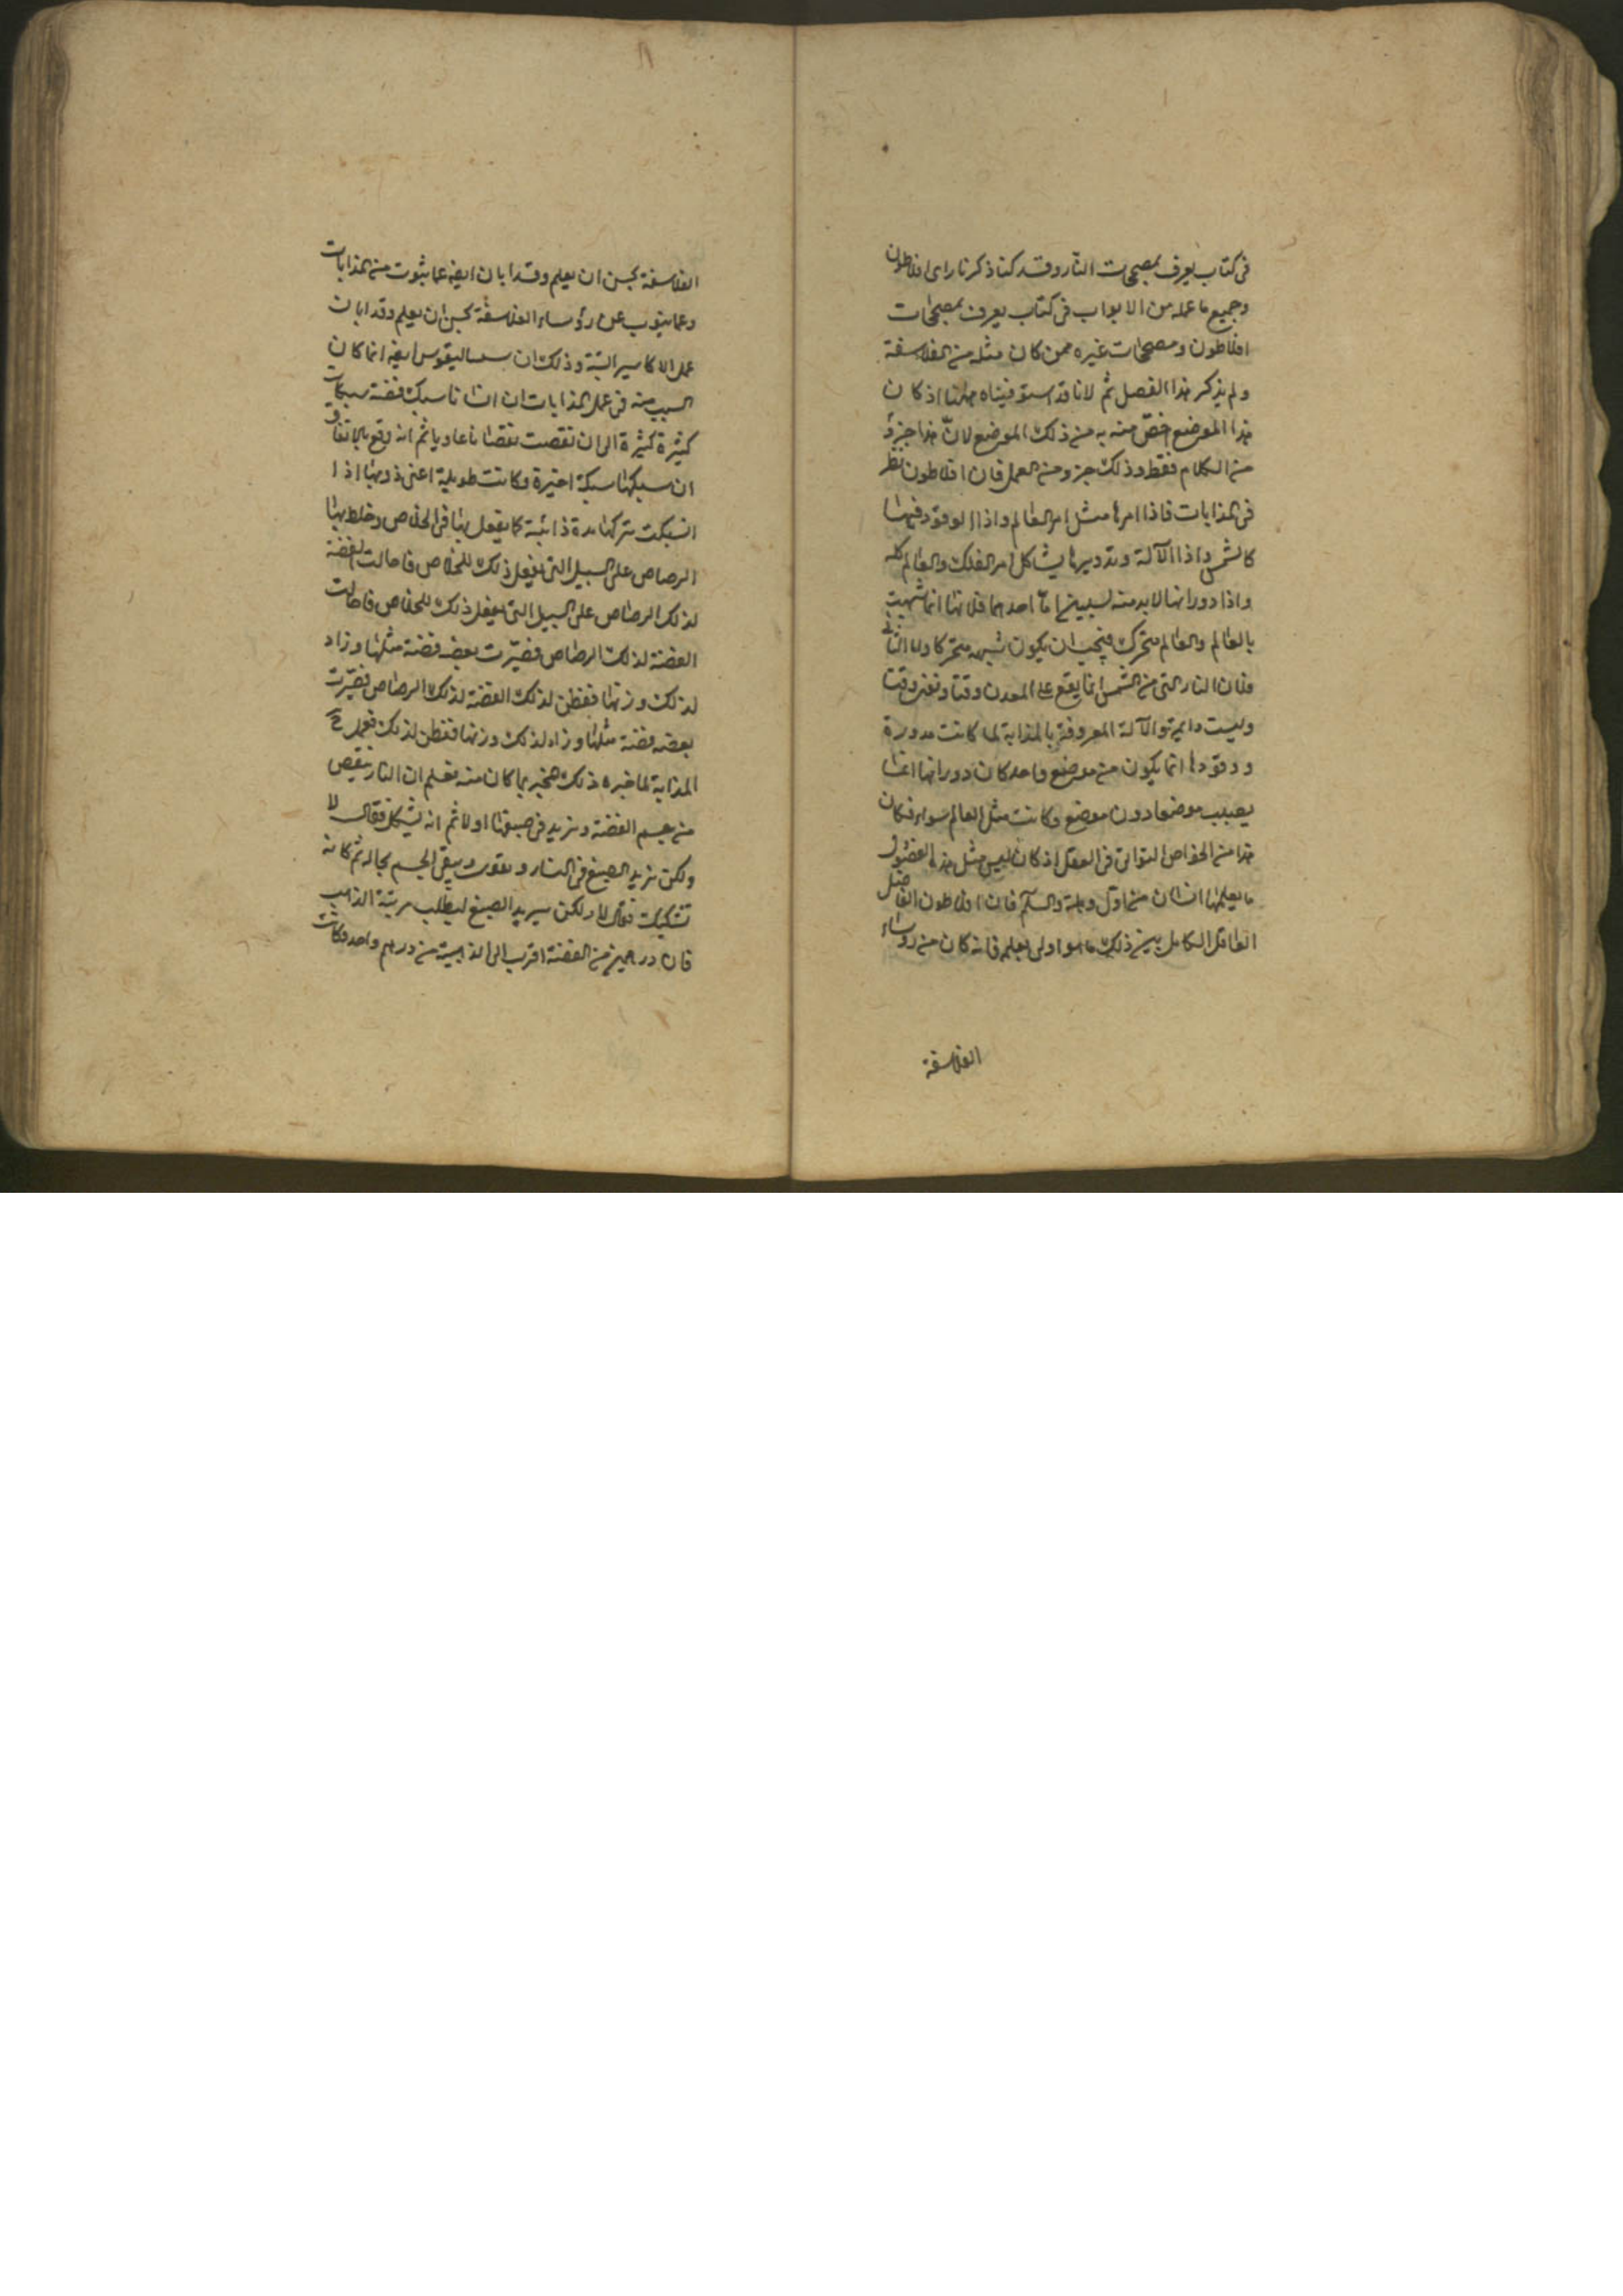 فى كتاب يعرف بمصححات النار وقد كنا ذكرنا راى افلاطون
وجميع ما عمله من الابواب فى كتاب يعرف بمصححات
افلاطون ومصححات غيره ممن كان مثله من الفلاسفة
ولم يذكر هذا الفصل ثم لانا قد استوفيناه ههنا اذ كان
هذا الموضع اخص منه به من ذلك الموضع لان هذا جزؤ
من الكلام فقط وذلك جزو من العمل فان افلاطون نظر
فى المذابات فاذا امرها مثل امر العالم واذا الوقود فيها
كالشمس واذا الآلة وتدويرها يشاكل امر الفلك والعالم كله
واذا دورانها لابد منه لسببين اما احدهما فلانها انما شبهت
بالعالم والعالم متحرك فيجب ان يكون شبهه متحركا واما الثانى
فلان النار التى من الشمس انما يقع على المعدن وقتا دون وقت
وليست دايمة والآلة المعروفة بالمذابة لما كانت مدورة
ووقودها انما يكون من موضع واحد كان دورانها انما
يصيب موضعا دون موضع وكانت مثل العالم سواء فكان
هذا من الخواص التوانى فى العقل اذ كان ليس مثل هذه الفضول
ما يعلمها انسان من اول وهلة والسلم فان افلاطون الفاضل
العاقل الكامل يبين ذلك ما هو اولى بعلم فانه كان من رؤساء
الفلاسفة
الفلاسفة يحسن ان يعلم وقد ابان ايضا عما يثوت من المذابات
وعما ينوب عن رؤساء الفلاسفة يحسن ان يعلم وقد ابان
عمل الاكاسير البتة وذلك ان ايضا انما كان
السبب منه فى عمل المذابات ان انسانا سبك فضة سبكات
كثيرة كثيرة الى ان نقصت نقصانا عاديا ثم انه وقع بالاتفاق
ان سبكها سبكة اخيرة وكانت طويلة اعنى ذوبها اذا
انسبكت تركها مدة ذائبة كما يفعل بها فى الخلاص وخلط بها
الرصاص على السبيل التى يفعل ذلك للخلاص فاحالت الفضة
لذلك الرصاص على السبيل التى يفعل ذلك للخلاص فاحالت
الفضة لذلك الرصاص فصيرت بعضه فضة مثلها وزاد
لذلك وزنها ففطن لذلك الفضة لذلك الرصاص فصيرت
بعضه فضة مثلها وزاد لذلك وزنها ففطن لذلك فعمل ح
المذابة لما خبره ذلك المخبر بما كان منه فعلم ان النار ينقص
من جسم الفضة وتزيد فى صبغها اولا ثم انه تشكل فقال لا
ولكن تزيد الصبغ فى النار ويقوت ويبقى الجسم بحاله ثم كانه
تشكك فقال لا ولكن سيريد الصبغ ليطلب مرتبة الذهب
فان درهمين من الفضة اقرب الى الذهبية من درهم واحد وكانت